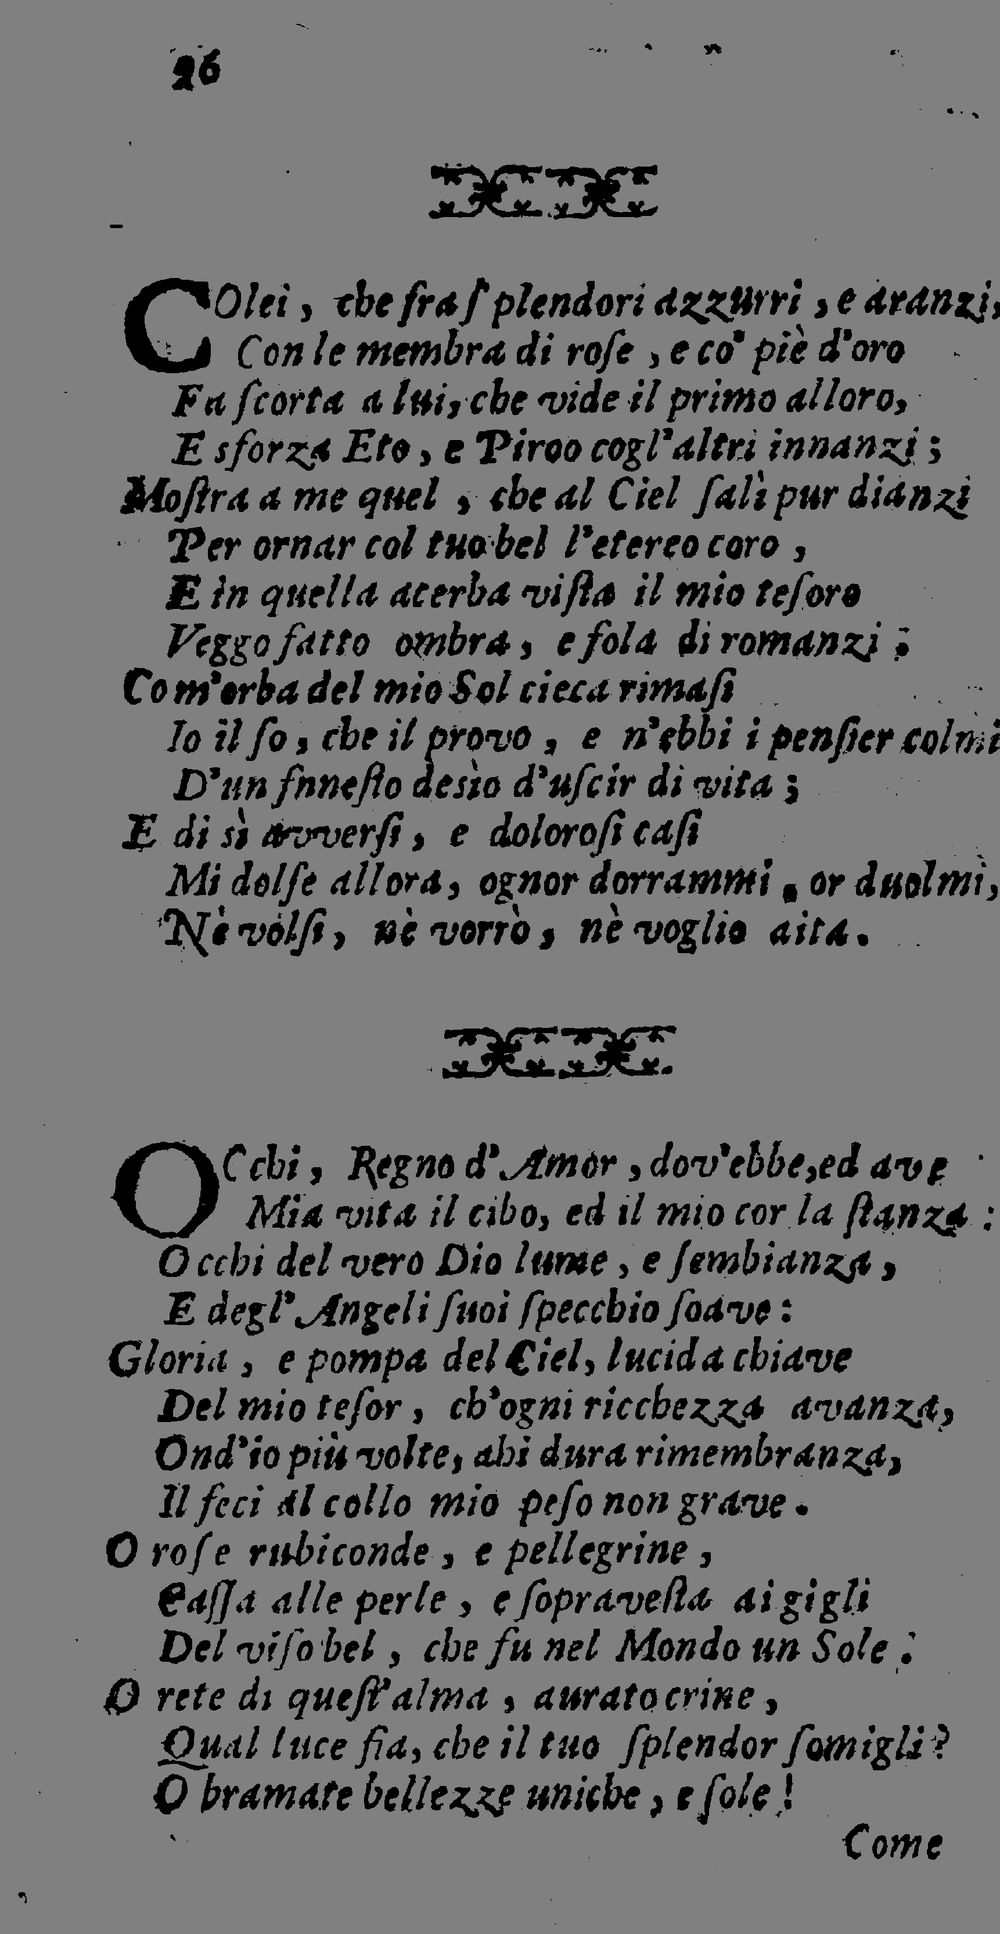 26
COlei, che fra ſplendori azzurri, e aranzi,
Con le membra di roſe, e co' piè d'oro
Fa ſcorta a lui, che vide il primo alloro,
E sforza Eto, e Piroo cogl'altri innanzi;
Moſtra a me quel, che al Ciel ſalì pur dianzi
Per ornar col tuo bel l'etereo coro,
E in quella acerba viſta il mio teſoro
Veggo fatto ombra, e fola di romanzi;
Com'orba del mio Sol cieca rimaſi
Io il ſo, che il provo, e n'ebbi i penſier colmi
D'un fnneſto desìo d'uſcir di vita;
E di sì avverſi, e doloroſi caſi
Mi dolſe allora, ognor dorrammi, or duolmi,
Nè volſi, nè vorrò, nè voglio aita.
OCchi, Regno d'Amor, dov'ebbe, ed ave
Mia vita il cibo, ed il mio cor la ſtanza:
Occhi del vero Dio lume, e ſembianza,
E degl'Angeli ſuoi ſpecchio ſoave:
Gloria, e pompa del Ciel, lucida chiave
Del mio teſor, ch'ogni ricchezza avanza,
Ond'io più volte, ahi dura rimembranza,
Il feci al collo mio peſo non grave.
O roſe rubiconde, e pellegrine,
Caſſa alle perle, e ſopraveſta ai gigli
Del viſo bel, che fu nel Mondo un Sole:
O rete di queſt'alma, aurato crine,
Qual luce fia, che il tuo ſplendor ſomigli?
O bramate bellezze uniche, e ſole!
Come